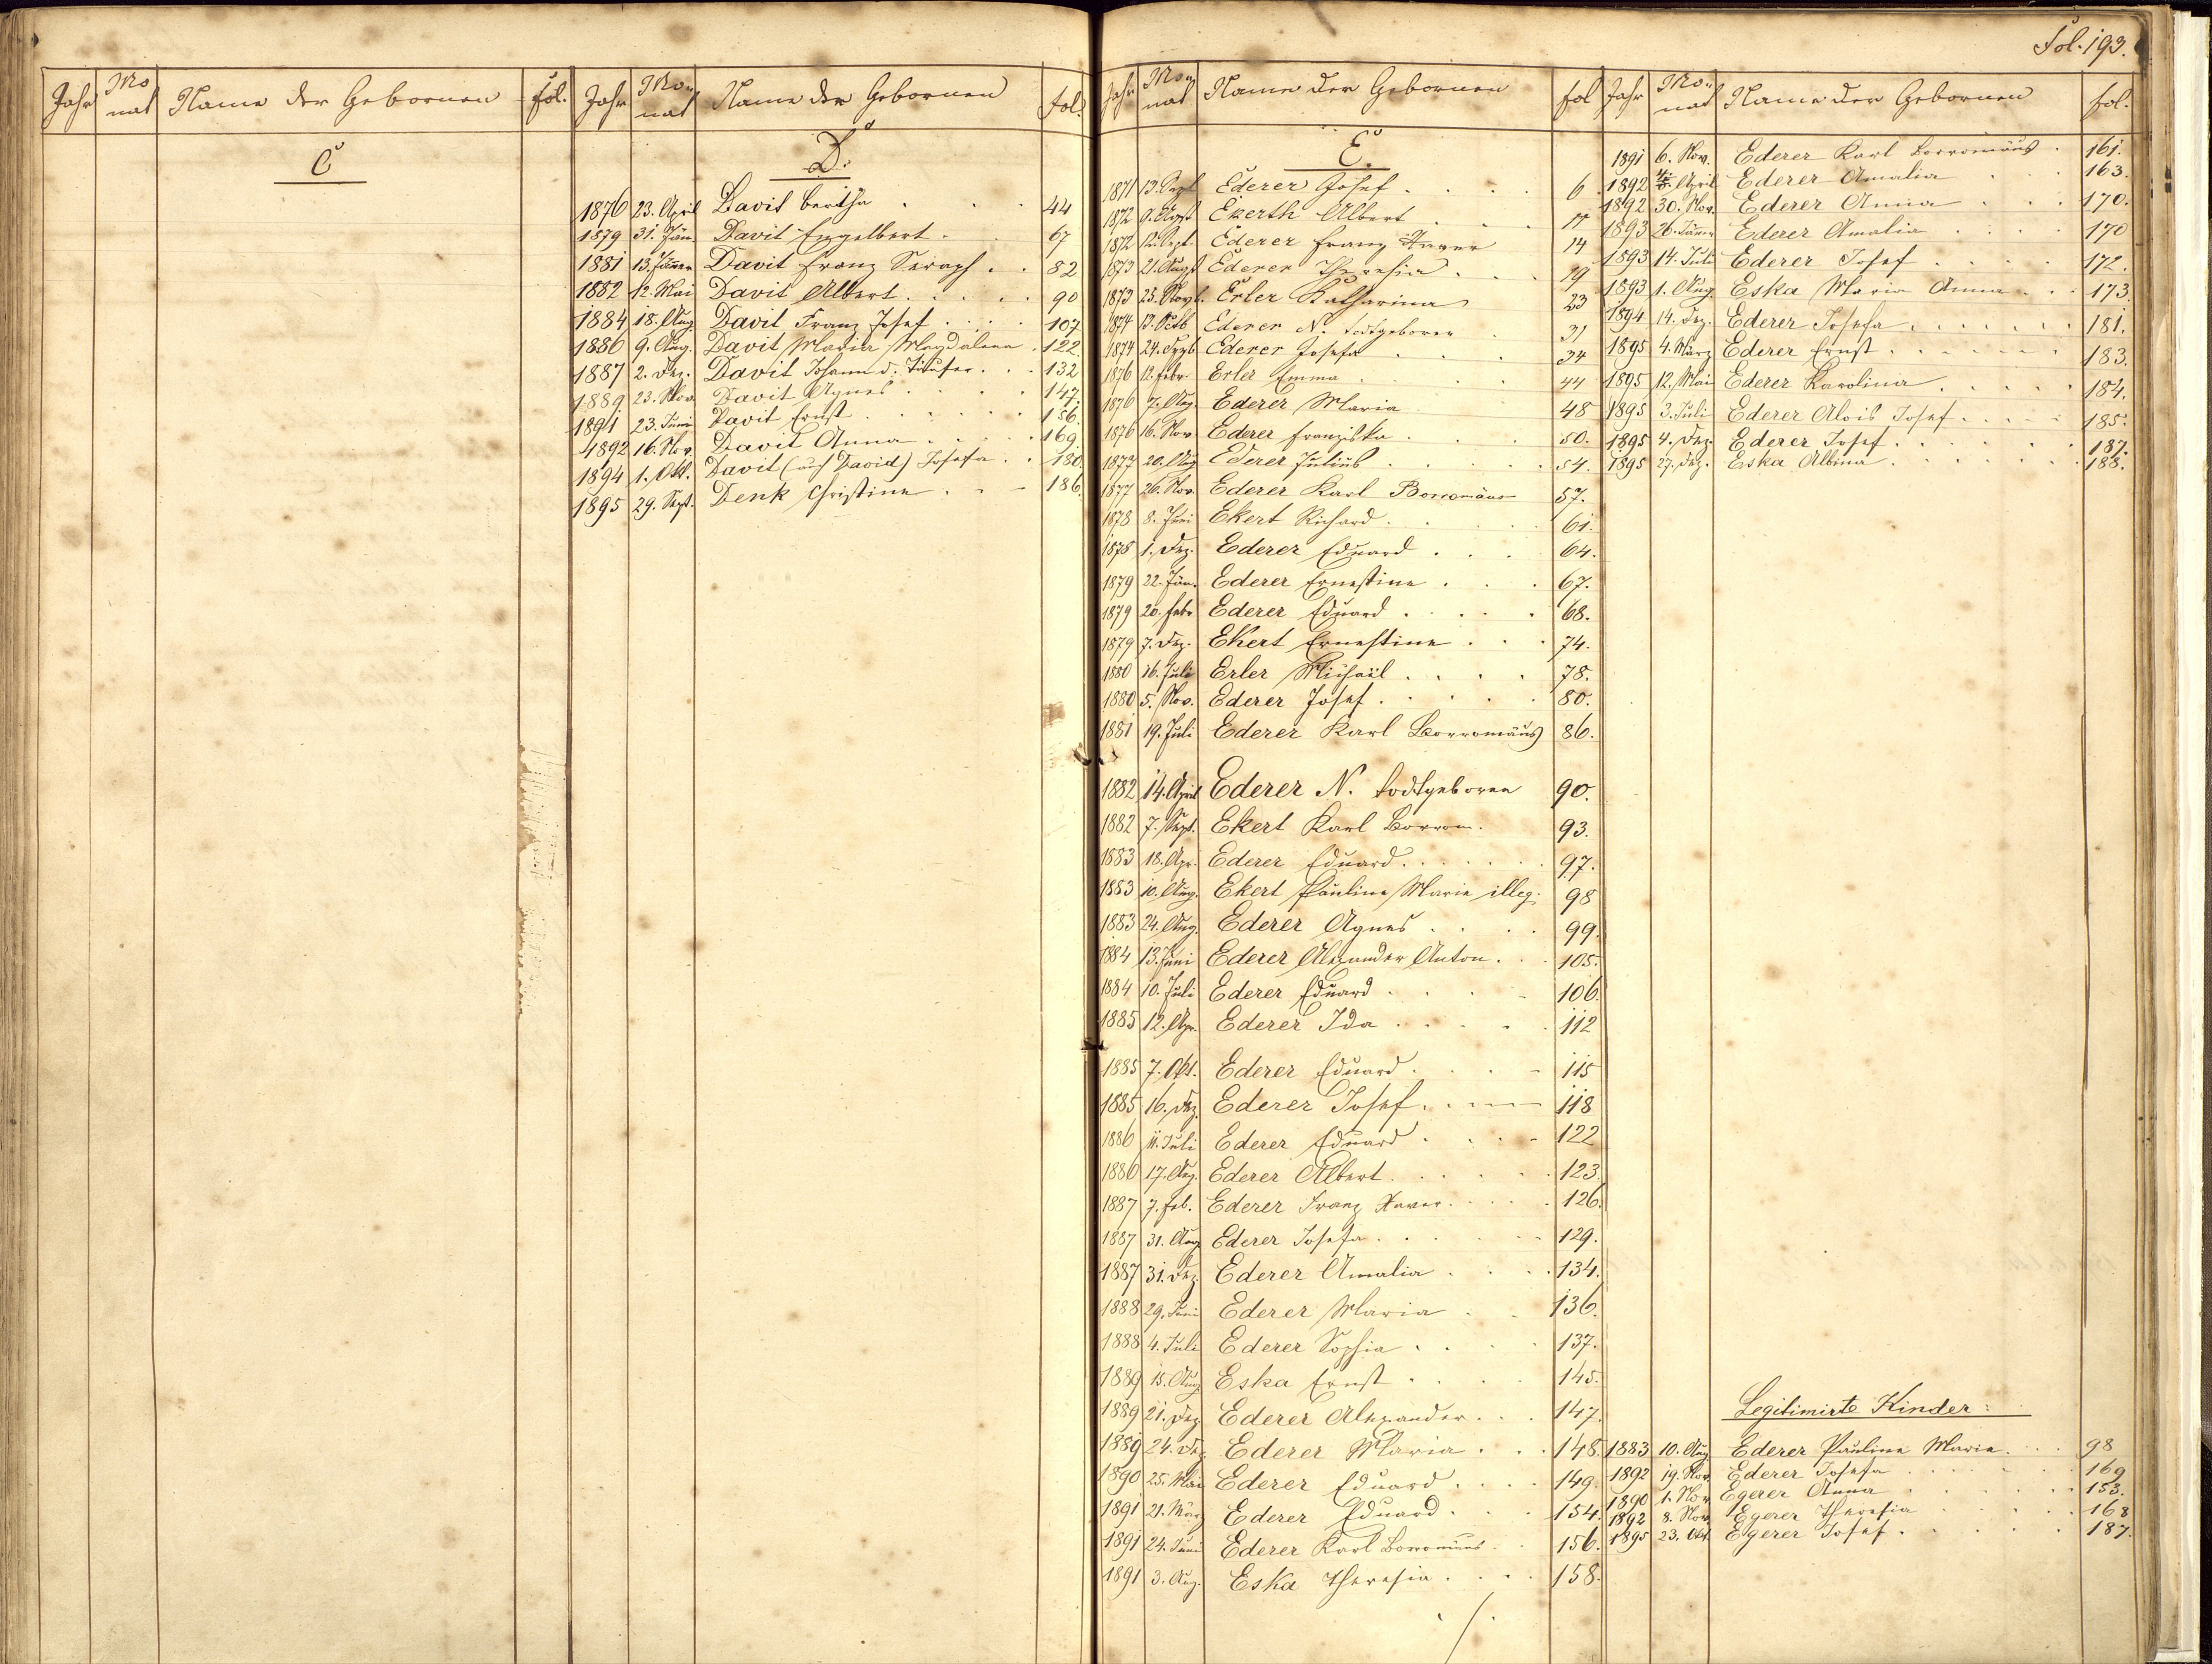 Fol. 193.
Jahr Mo nat Name der Gebornen fol.
C
Jahr Mo- nat Name der Gebornen fol.
D.
1876 23. April Davit Bertha . . . 44
1879 31. Jän. Davit Engelbert . . 67
1881 13. Jänner Davit Franz Seraph . . 82
1882 12. Mai Davit Albert . . . . 90
1884 18. Aug. Davit Franz Josef . . . 107
1886 9. Aug. Davit Maria Magdalena . 122.
1887 2. Dez. Davit Johann d. Täufer . . . 132
1889 23. Nov. Davit Agnes . . . . 147.
1891 23. Juni Davit Ernst . . . . . 156.
1892 16. Nov. Davit Anna . . . . . 169.
1894 1. Okt. Davit (auch David) Josefa . . 180.
1895 29. Sept. Denk Christine . . - 186.
Jahr Mo- nat Name der Gebornen fol
E.
1871 13. Sept Ederer Josef . . . . 6
1872 9. Augst Ekerth Albert . . .
1872 12. Sept. Ederer Franz Xaver 14
1873 21. Augst Ederer Theresia . . . 19
1873 25. Novb. Erler Katharina 23
1874 13. Octb Ederer N. todtgeboren . 31
1874 24. Dezb Ederer Josefa . . . 34
1876 12. Febr. Erler Emma . . . . 44
1876 7. Aug. Ederer Maria 48
1876 16. Nov. Ederer Franziska . . . 50.
1877 20. Aug Ederer Julius . . . . . 54.
1877 26. Nov. Ederer Karl Borromäus 57.
1878 8. Juni Ekert Richard . . . . 61.
1878 1. Dez. Ederer Eduard . . . 64.
1879 22. Jän. Ederer Ernestine . . . 67.
1879 20. Febr Ederer Eduard . . . . 68.
1879 7. Dez. Ekert Ernestine . . . 74.
1880 16. Juli Erler Michaël . . . . 78.
1880 5. Nov. Ederer Josef . . . . . 80.
1881 19. Juli Ederer Karl Borromäus 86.
1882 14. April Ederer N. todtgeboren 90.
1882 7. Sept. Ekert Karl Borrom. 93.
1883 18. Apr. Ederer Eduard . . . . . . 97.
1883 10. Aug. Ekert Pauline Marie illeg. 98
1883 24. Aug. Ederer Agnes . . . . 99.
1884 13. Juni Ederer Alexander Anton . . 105.
1884 10. Juli Ederer Eduard . . . . 106.
1885 12. Apr. Ederer Ida . . . . . 112
1885 7. Okt. Ederer Eduard . . . - 115
1885 16. Dez. Ederer Josef . . - - 118
1886 11. Juli Ederer Eduard . . . - 122
1886 17. Aug. Ederer Albert . . . . . 123.
1887 7. Feb. Ederer Franz Xaver . . . . 126.
1887 31. Aug Ederer Josefa . . . . . . 129.
1887 31. Dez. Ederer Amalia . . . . 134.
1888 29. Juni Ederer Maria . . 136.
1888 4. Juli Ederer Sophia . . . . 137.
1889 15. Aug Eska Ernst . . . . 145.
1889 21. Dez Ederer Alexander . . . 147.
1889 24. Dez Ederer Maria . . . 148.
1890 25. März Ederer Eduard . . . . 149.
1891 21. März Ederer Eduard . . . 154.
1891 24. Juni Ederer Karl Borromäus . . 156.
1891 3. Aug. Eska Theresia . . . . 158.
./.
Jahr Mo- nat Name der Gebornen fol.
1891 6. Nov. Ederer Karl Borromäus . 161.
1892 April Ederer Amalia . . . 163.
1892 30. Nov. Ederer Anna . . . 170.
1893 26. Jänner Ederer Amalia . . . . 170
1893 14. Juli Ederer Josef . . . . . 172.
1893 1. Aug. Eska Maria Anna . . . 173.
1894 14. Dez. Ederer Josefa . . . . . . . 181.
1895 4. März Ederer Ernst . . . . . . . 183.
1895 12. Mai Ederer Karolina . . . . . . 184.
1895 3. Juli Ederer Alois Josef . . . - 185.
1895 4. Dez. Ederer Josef . . . . . . 187.
1895 27. Dez. Eska Albina . . . . . . 188.
Legitimirte Kinder:
1883 10. Aug Ederer Pauline Marie . . . 98
1892 19. Nov. Ederer Josefa . . . . . . 169
1890 1. Nov. Egerer Anna . . . . . . 153.
1892 8. Nov. Egerer Theresia . . . . 168
1895 23. Okt. Egerer Josef . . . . . . 187.